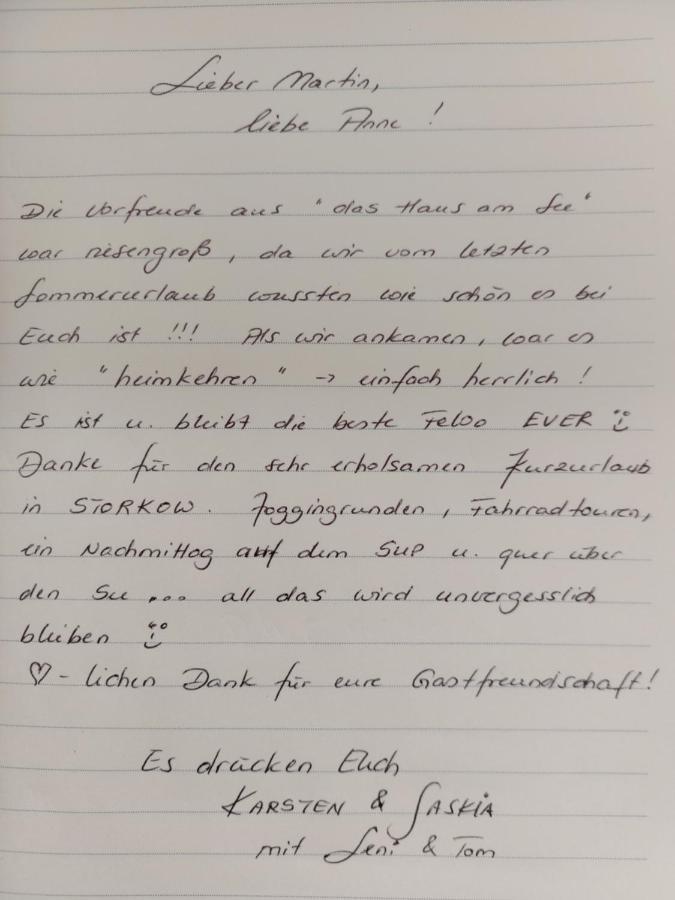 Lieber Martin,
liebe Anne !
Die Vorfreude aus "das Haus am See"
war riesengroß, da wir vom letzten
Sommerurlaub wussten wie schön es bei
Euch ist !!! Als wir ankamen, war es
wie "heimkehren" → einfach herrlich !
Es ist u. bleibt die beste FeWo EVER
Danke für den sehr erholsamen Kurzurlaub
in STORKOW. Joggingrunden, Fahrradtouren,
ein Nachmittag auf dem SUP u. quer über
den See ... all das wird unvergesslich
bleiben
♡-lichen Dank für eure Gastfreundschaft!
Es drücken Euch
KARSTEN & SASKIA
mit Leni & Tom